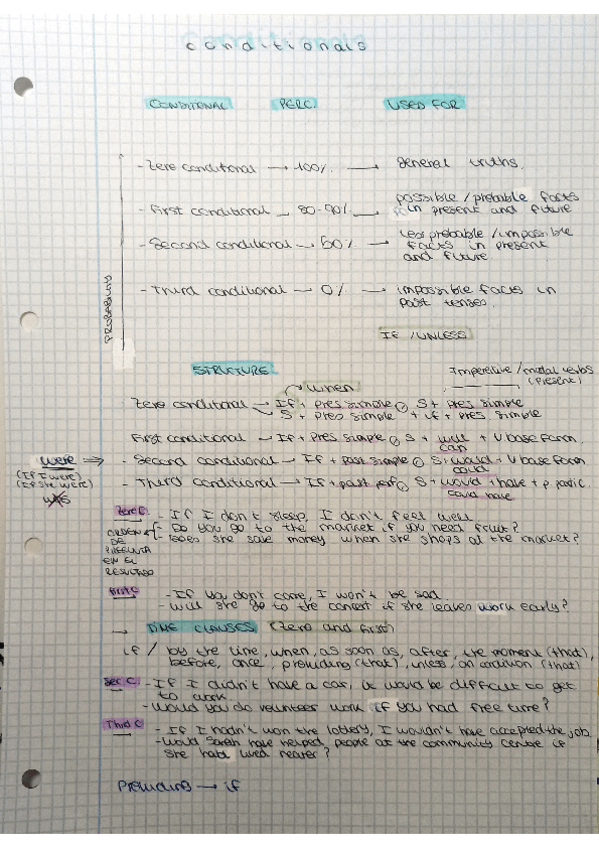 conditionals
CONDITIONAL PERC. USED FOR
- Zero conditional → 100% → general truths.
- First conditional → 80-90% → possible / probable facts
in present and future
- Second conditional → 50% → less probable / impossible
facts in present
and future
- Third conditional → 0% → impossible facts in
past tenses.
PROBABILITY
IF / UNLESS
STRUCTURE
Imperative / modal verbs
(present)
when
Zero conditional → If + pres simple , S + pres simple
S + pres simple + if + pres simple
First conditional → If + pres simple , S + will + V base form.
can
were ⇒ - Second conditional → If + past simple , S + would + V base form
could
(If I were)
(If she were)
was
- Third conditional → If + past perf , S + would + have + p partic.
could have
Zero C. - If I don't sleep, I don't feel well
- Do you go to the market if you need fruit?
- Does she save money when she shops at the market?
ORDEN
DE
PREGUNTA
EN EL
RESULTADO
First C - If you don't come, I won't be sad
- Will she go to the concert if she leaves work early?
→ TIME CLAUSES (zero and first)
if / by the time, when, as soon as, after, the moment (that),
before, once, providing (that), unless, on condition (that)
Sec C. - If I didn't have a car, it would be difficult to get
to work.
- Would you do volunteer work if you had free time?
Third C - If I hadn't won the lottery, I wouldn't have accepted the job
- Would Sarah have helped people at the community centre if
she had lived nearer?
→ if